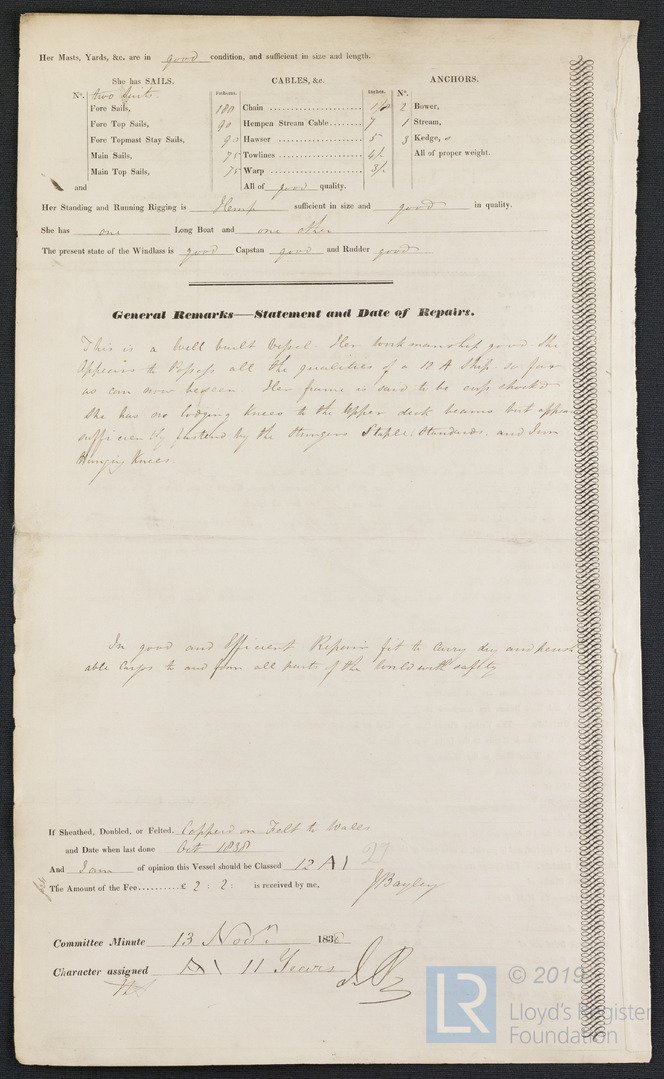 Her Masts, Yards, &c. are in good condition, and sufficient in size and length.
She has SAILS. CABLES, &c. ANCHORS.
N°. Fathoms. Inches. N°.
two suits
Fore Sails, 180 Chain 2 Bower,
Fore Top Sails, 90 Hempen Stream Cable 7 1 Stream,
Fore Topmast Stay Sails, 90 Hawser 5 3 Kedge,
Main Sails, 75 Towlines All of proper weight.
Main Top Sails, 75 Warp
and All of good quality.
Her Standing and Running Rigging is Hemp sufficient in size and good in quality.
She has one Long Boat and one other
The present state of the Windlass is good Capstan good and Rudder good
General Remarks—Statement and Date of Repairs.
This is a Well built Vessel. Her Workmanship good She
Appears to Possess all the qualities of a 12 A Ship so far
as can now be seen Her frame is said to be
She has no lodging Knees to the Upper deck beams but appears
sufficiently fastend by the Stringers Staple Standards. and Iron
Hanging Knees.
In good and Efficient Repair fit to carry dry and perish
able Cargo to and from all parts of the World with safety
If Sheathed, Doubled, or Felted, Copperd on Felt to Wales
and Date when last done Oct 1838
And I am of opinion this Vessel should be Classed 12 A 1
The Amount of the Fee..........£ 2 : 2 : is received by me,
J Bayley
Committee Minute 13 Novr. 1838
Character assigned A 1 11 Years
© 2019
LR Lloyd's Register
Foundation